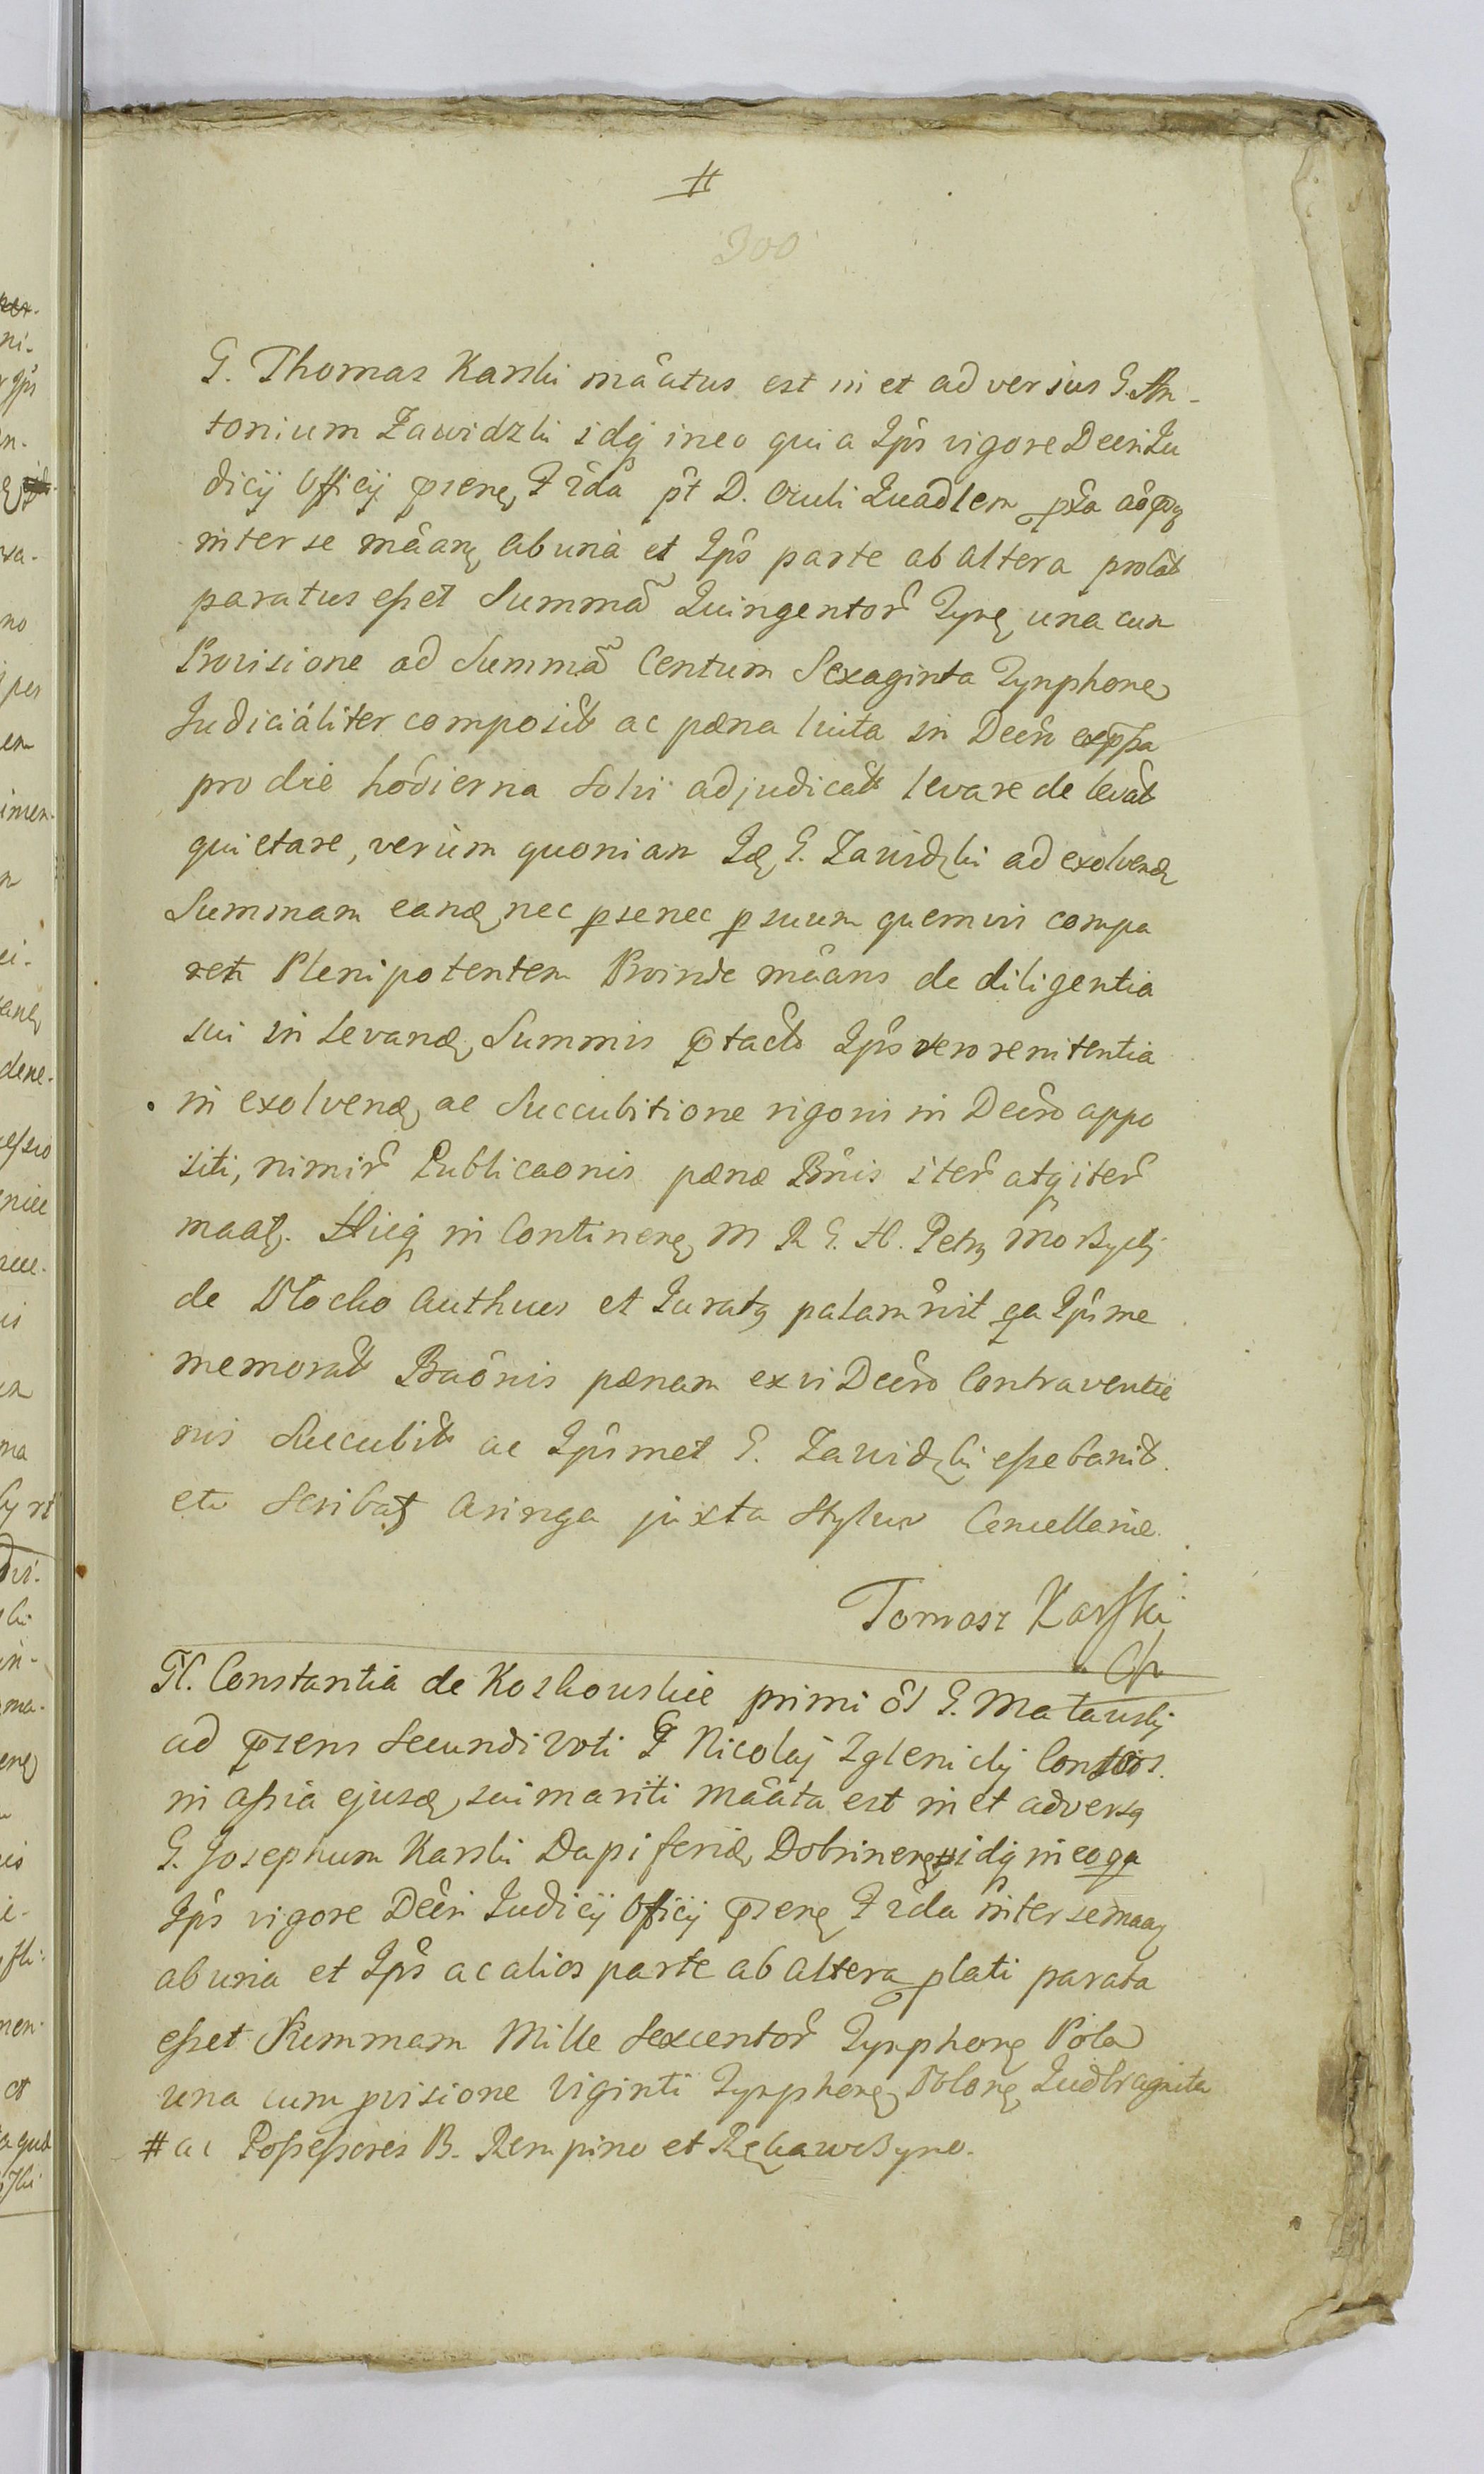 #
300
G. Thomas Karski mâatus est in et adversus G. An-
tonium Zawidzki idq ineo quia Ips vigore Decri Ju
dicij Officij prsens, F rda pt D. Oculi Quadlem pxa
inter se mâans, ab unâ et Ips parte ab altera prolat
paratus esset Summa Quingentor Tyne, una cum
Provisione ad Summa Centum Sexaginta Tynphone
Judicialiter composit ac pæna luita in Decro exppssa
pro die hodierna Solvi adjudicat levare de levat
quietare, verùm quoniam Id G. Zawidzki ad exolvend
Summam eand, nec p se nec p suum quemvis compa
ret Plenipotentem Proinde mâans de diligentia
sui in levand, Summis ptacto Ips vero renitentia
in exolvend, ac Succubitione rigoris in Decro appo
siti, nimir Publicaonis pænæ Bnis iter atq iter
maat. Hicq in Continene M R G. H. Petr Moszycki
de Plocko Authus et Jurat palam rnit qa Ips me
memorat Baonis pænam ex vi Decro Contraventio
nis Succubit ac Ipsmet G. Zawidzki esse banit.
etc Scribat Aringa juxta Stylum Cancellariæ.
Tomasz Karski
G. Constantia de Koskowskie primi ol G. Matauskj
ad prsens Secundi Voti G Nicolaj Zglenickj Consors.
in assia ejusd, sui mariti mâata est in et advers
G. Josephum Karski Dapiferid, Dobrinen # idq in eo qa
Ips vigore Decri Judicij Officij prsens F rda inter se maan
ab una et Ips ac alios parte ab altera plati parata
esset Summam Mille Sexcentor Tynphone Pola
una cum pvisione Viginti Tynphone, Polone
# ac Possessores B. Rempino et